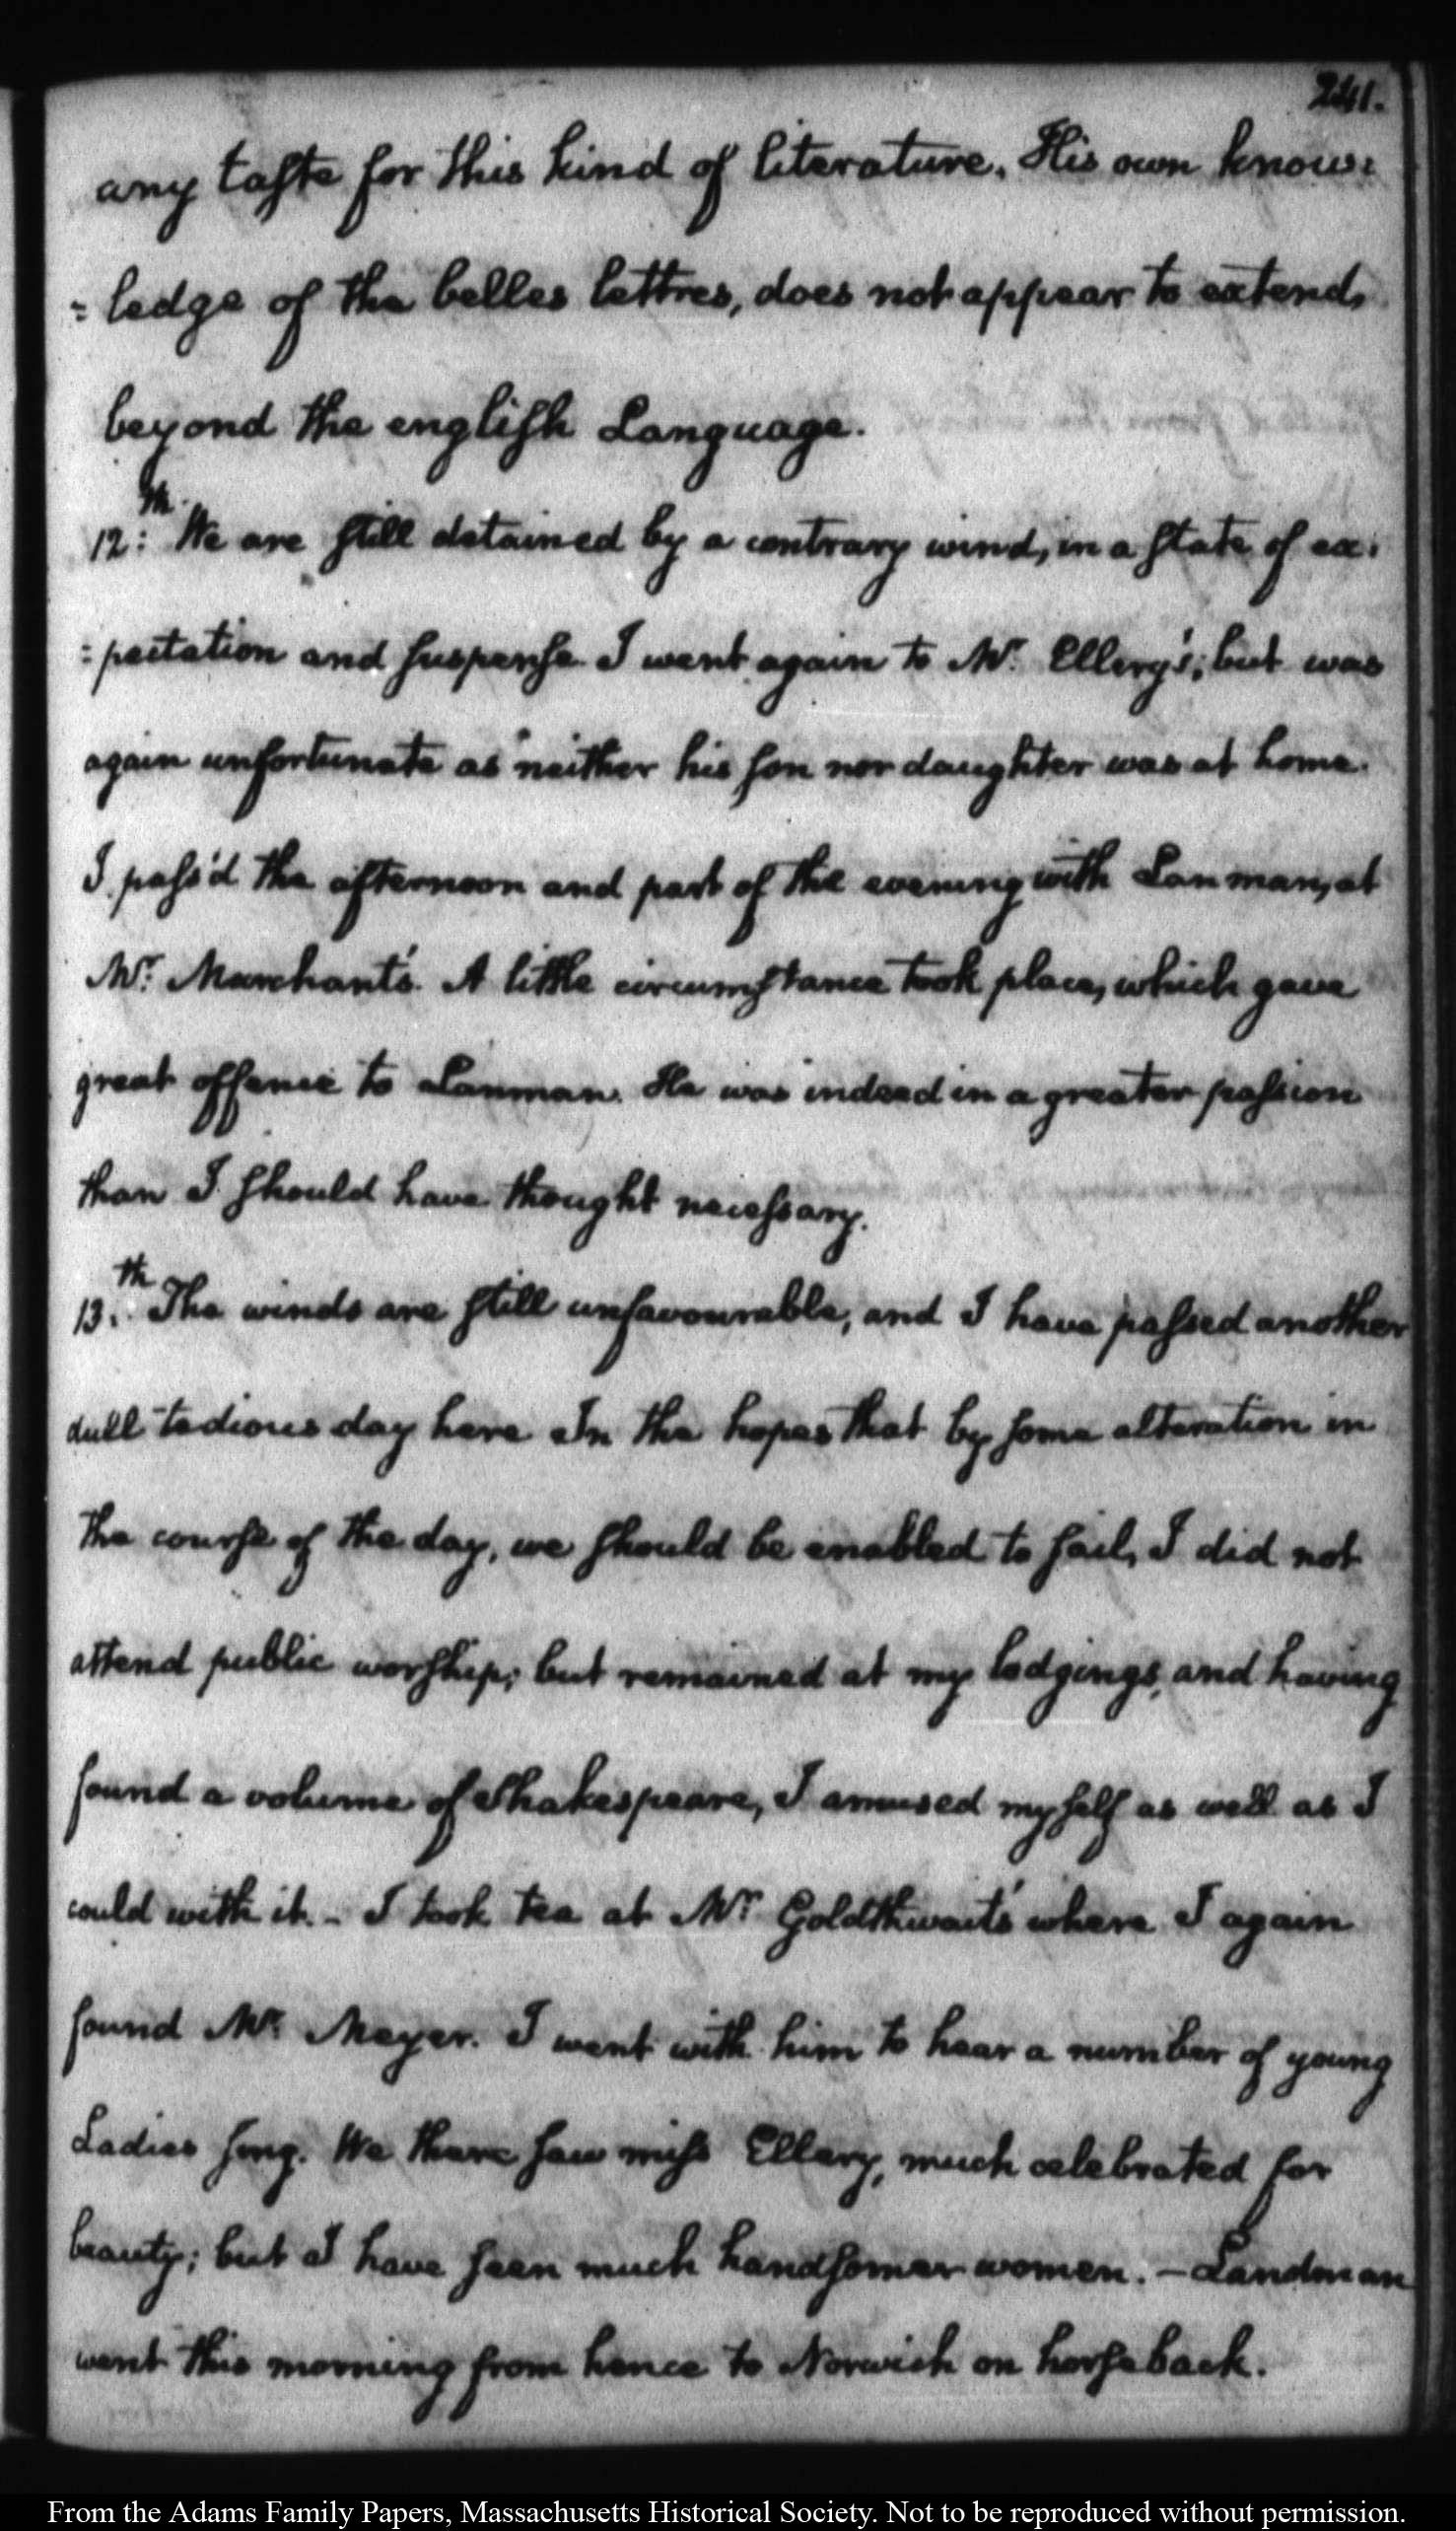 241.
any taste for this kind of literature. His own know:
:ledge of the belles lettres, does not appear to extend,
beyond the english Language.
12:th. We are still detained by a contrary wind, in a state of ex:
:pectation and suspense. I went again to Mr. Ellery's; but was
again unfortunate as neither his son nor daughter was at home.
I pass'd the afternoon and part of the evening with Lanman, at
Mr. Marchant's. A little circumstance took place, which gave
great offence to Lanman. He was indeed in a greater passion
than I should have thought necessary.
13.th The winds are still unfavourable, and I have passed another
dull tedious day here. In the hopes that by some alteration in
the course of the day, we should be enabled to sail, I did not
attend public worship; but remained at my lodgings, and having
found a volume of Shakespeare, I amused myself as well as I
could with it. - I took tea at Mr Goldthwait's where I again
found Mr. Meyer. I went with him to hear a number of young
Ladies sing. We there saw miss Ellery, much celebrated for
beauty; but I have seen much handsomer women. - Landman
went this morning from hence to Norwich on horseback.
From the Adams Family Papers, Massachusetts Historical Society. Not to be reproduced without permission.